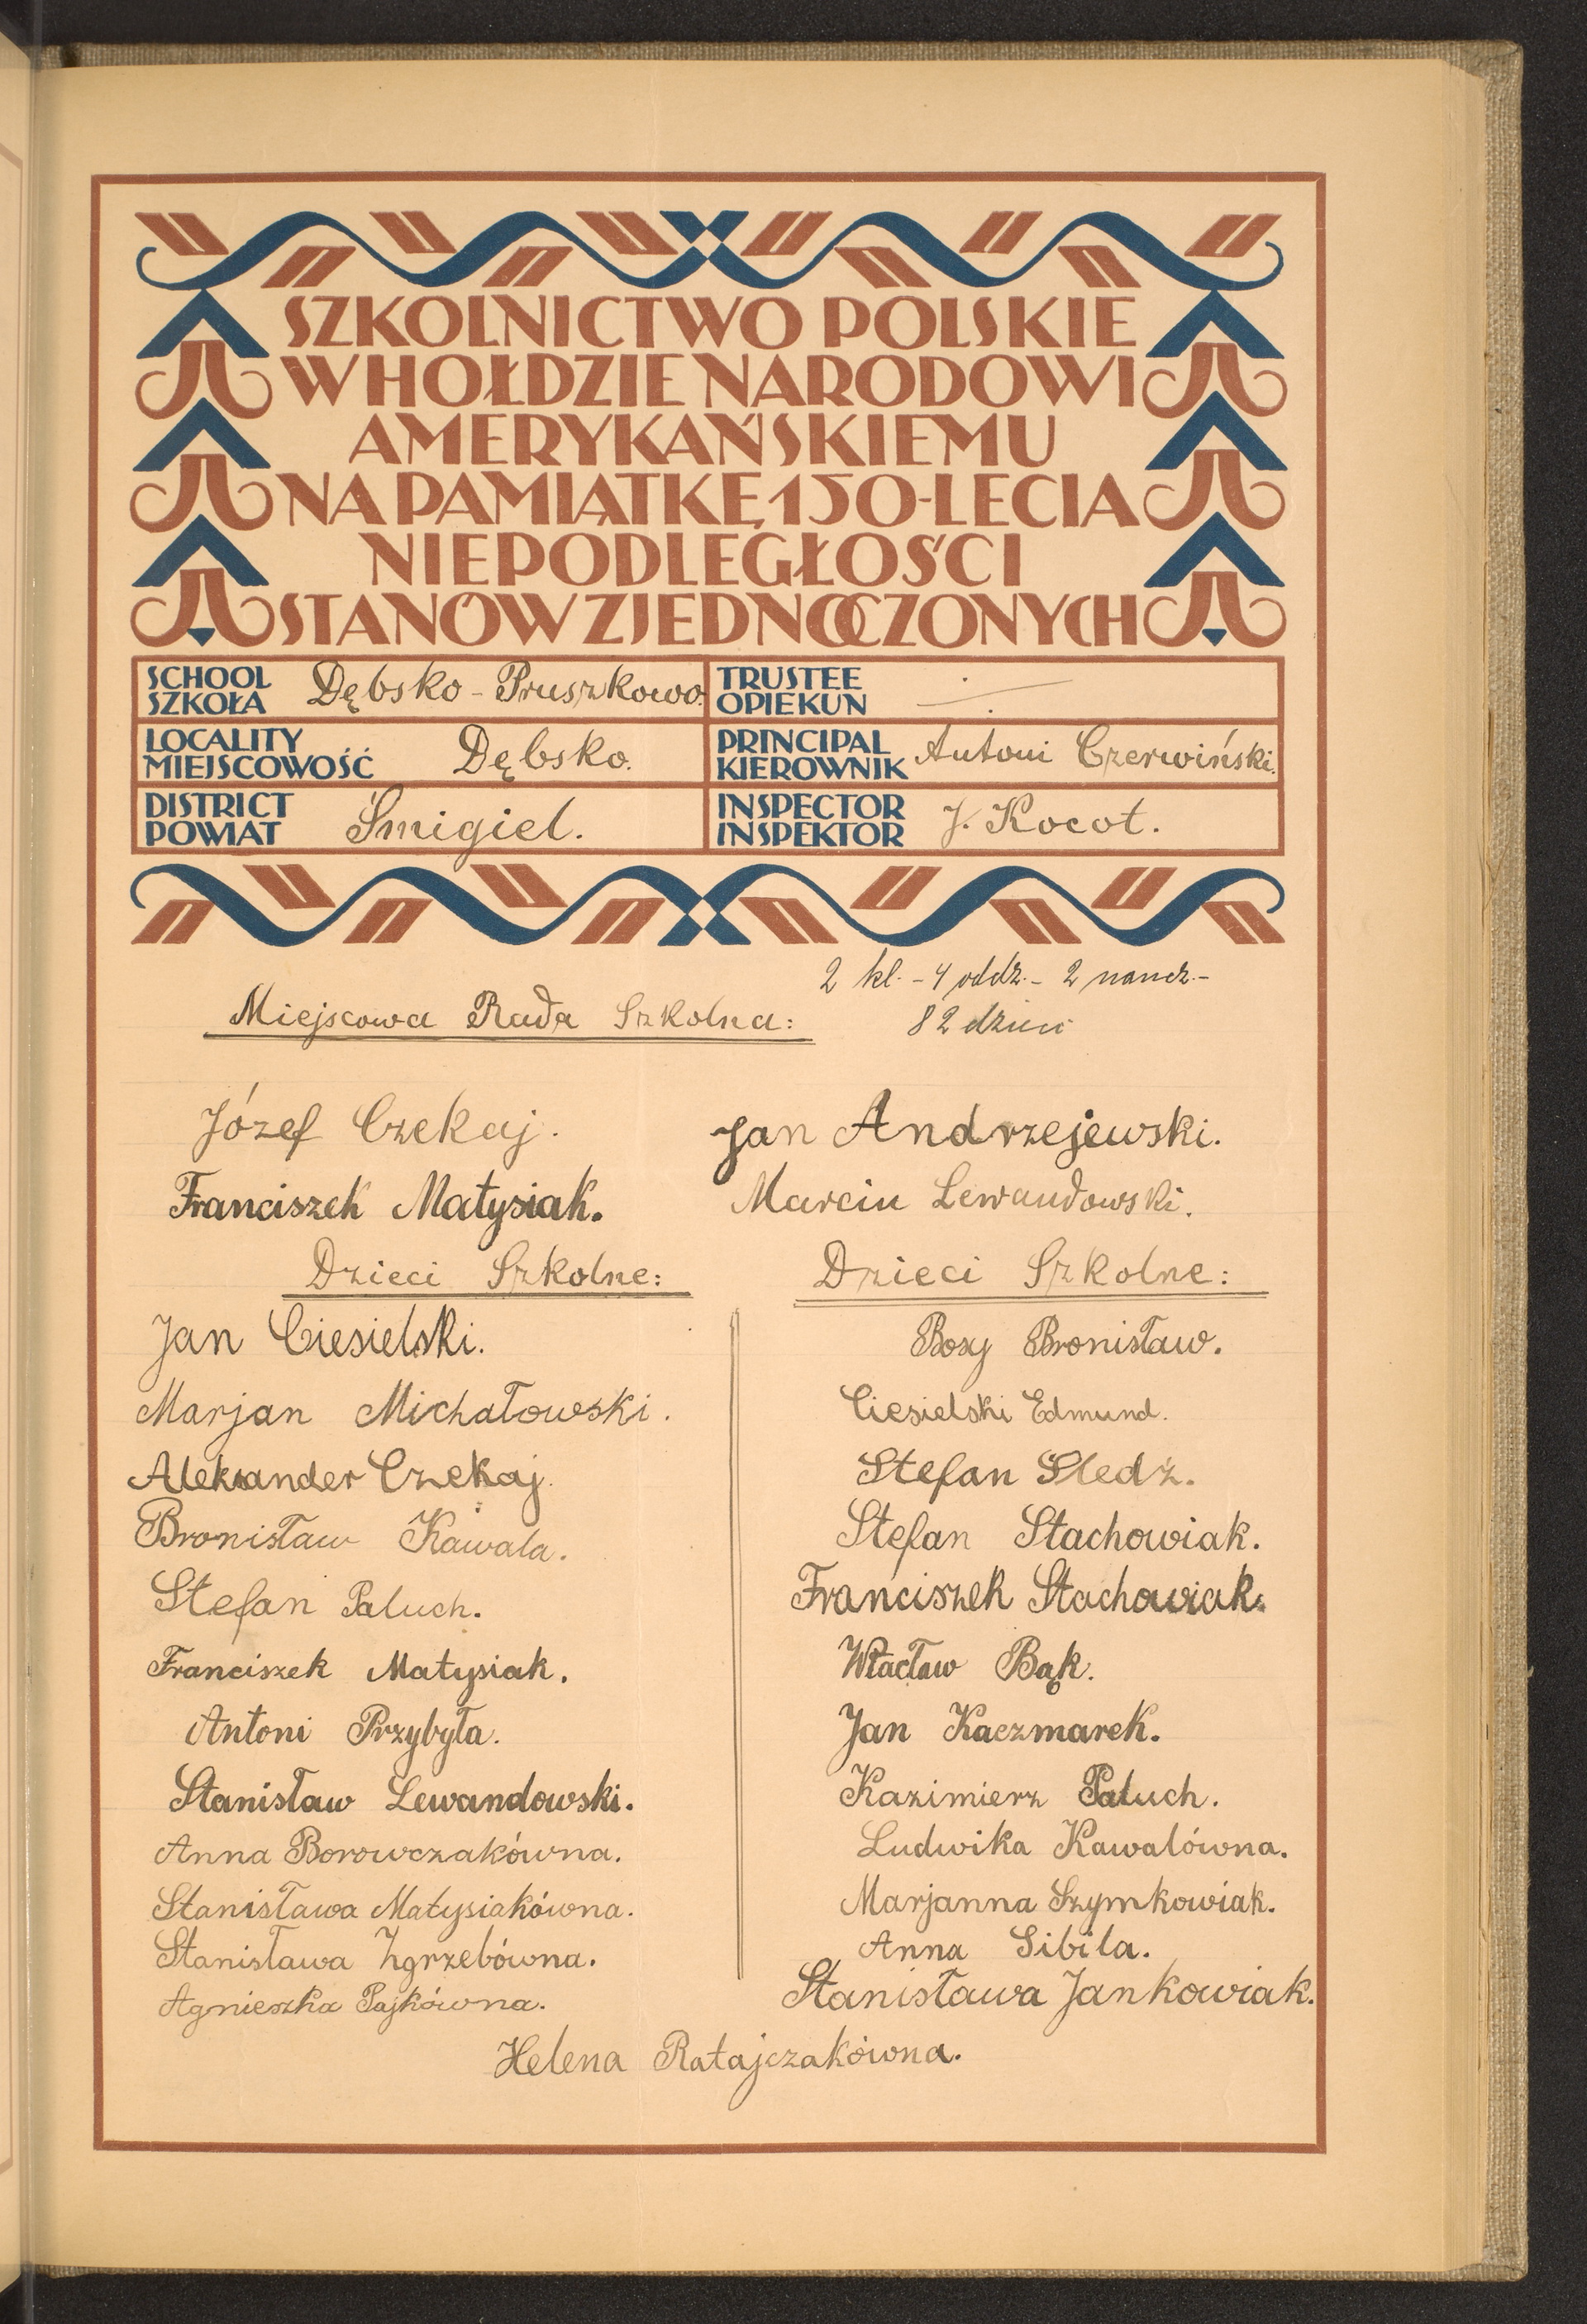 SZKOLNICTWO POLSKIE
W HOŁDZIE NARODOWI
AMERYKAŃSKIEMU
NA PAMIĄTKĘ 150-LECIA
NIEPODLEGŁOŚCI
STANÓW ZJEDNOCZONYCH
SCHOOL
SZKOŁA
Dębsko - Pruszkowo.
TRUSTEE
OPIEKUN
LOCALITY
MIEJSCOWOŚĆ
Dębsko.
PRINCIPAL
KIEROWNIK
Antoni Czerwiński.
DISTRICT
POWIAT
Śmigiel.
INSPECTOR
INSPEKTOR
J. Kocot.
2 kl. - 4 oddz. - 2 naucz. -
Miejscowa Rada Szkolna:
82 dzieci
Józef Czekaj.
Jan Andrzejewski.
Franciszek Matysiak.
Marcin Lewandowski.
Dzieci Szkolne:
Jan Ciesielski.
Marjan Michałowski.
Aleksander Czekaj.
Bronisław Kawala.
Stefan Paluch.
Franciszek Matysiak.
Antoni Przybyła.
Stanisław Lewandowski.
Anna Borowczakówna.
Stanisława Matysiakówna.
Stanisława Zgrzebówna.
Agnieszka Pajkówna.
Dzieci Szkolne:
Bosy Bronisław.
Ciesielski Edmund.
Stefan Śledź.
Stefan Stachowiak.
Franciszek Stachowiak.
Wacław Bąk.
Jan Kaczmarek.
Kazimierz Paluch.
Ludwika Kawalówna.
Marjanna Szymkowiak.
Anna Sibila.
Stanisława Jankowiak.
Helena Ratajczakówna.